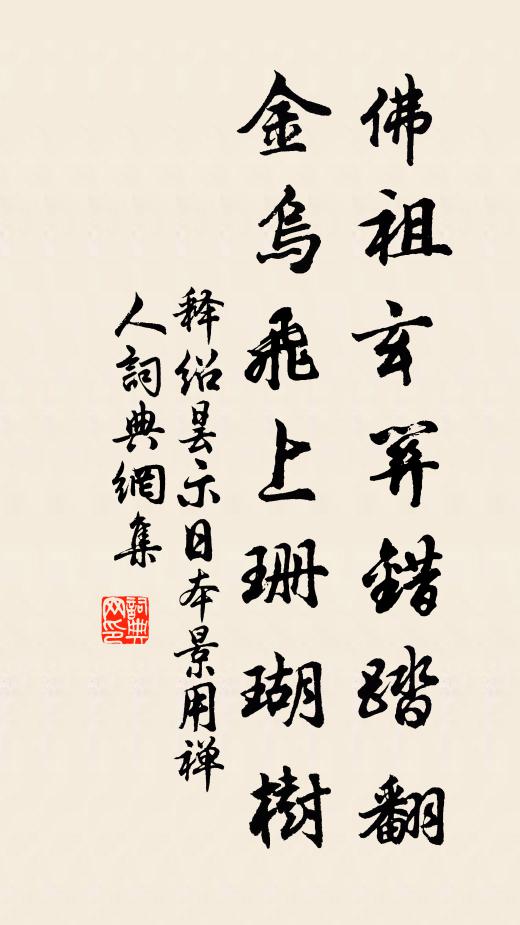 佛祖玄關錯踏翻
金烏飛上珊瑚樹
释绍曇示日本景用禅
人詞典網集
詞典
网印